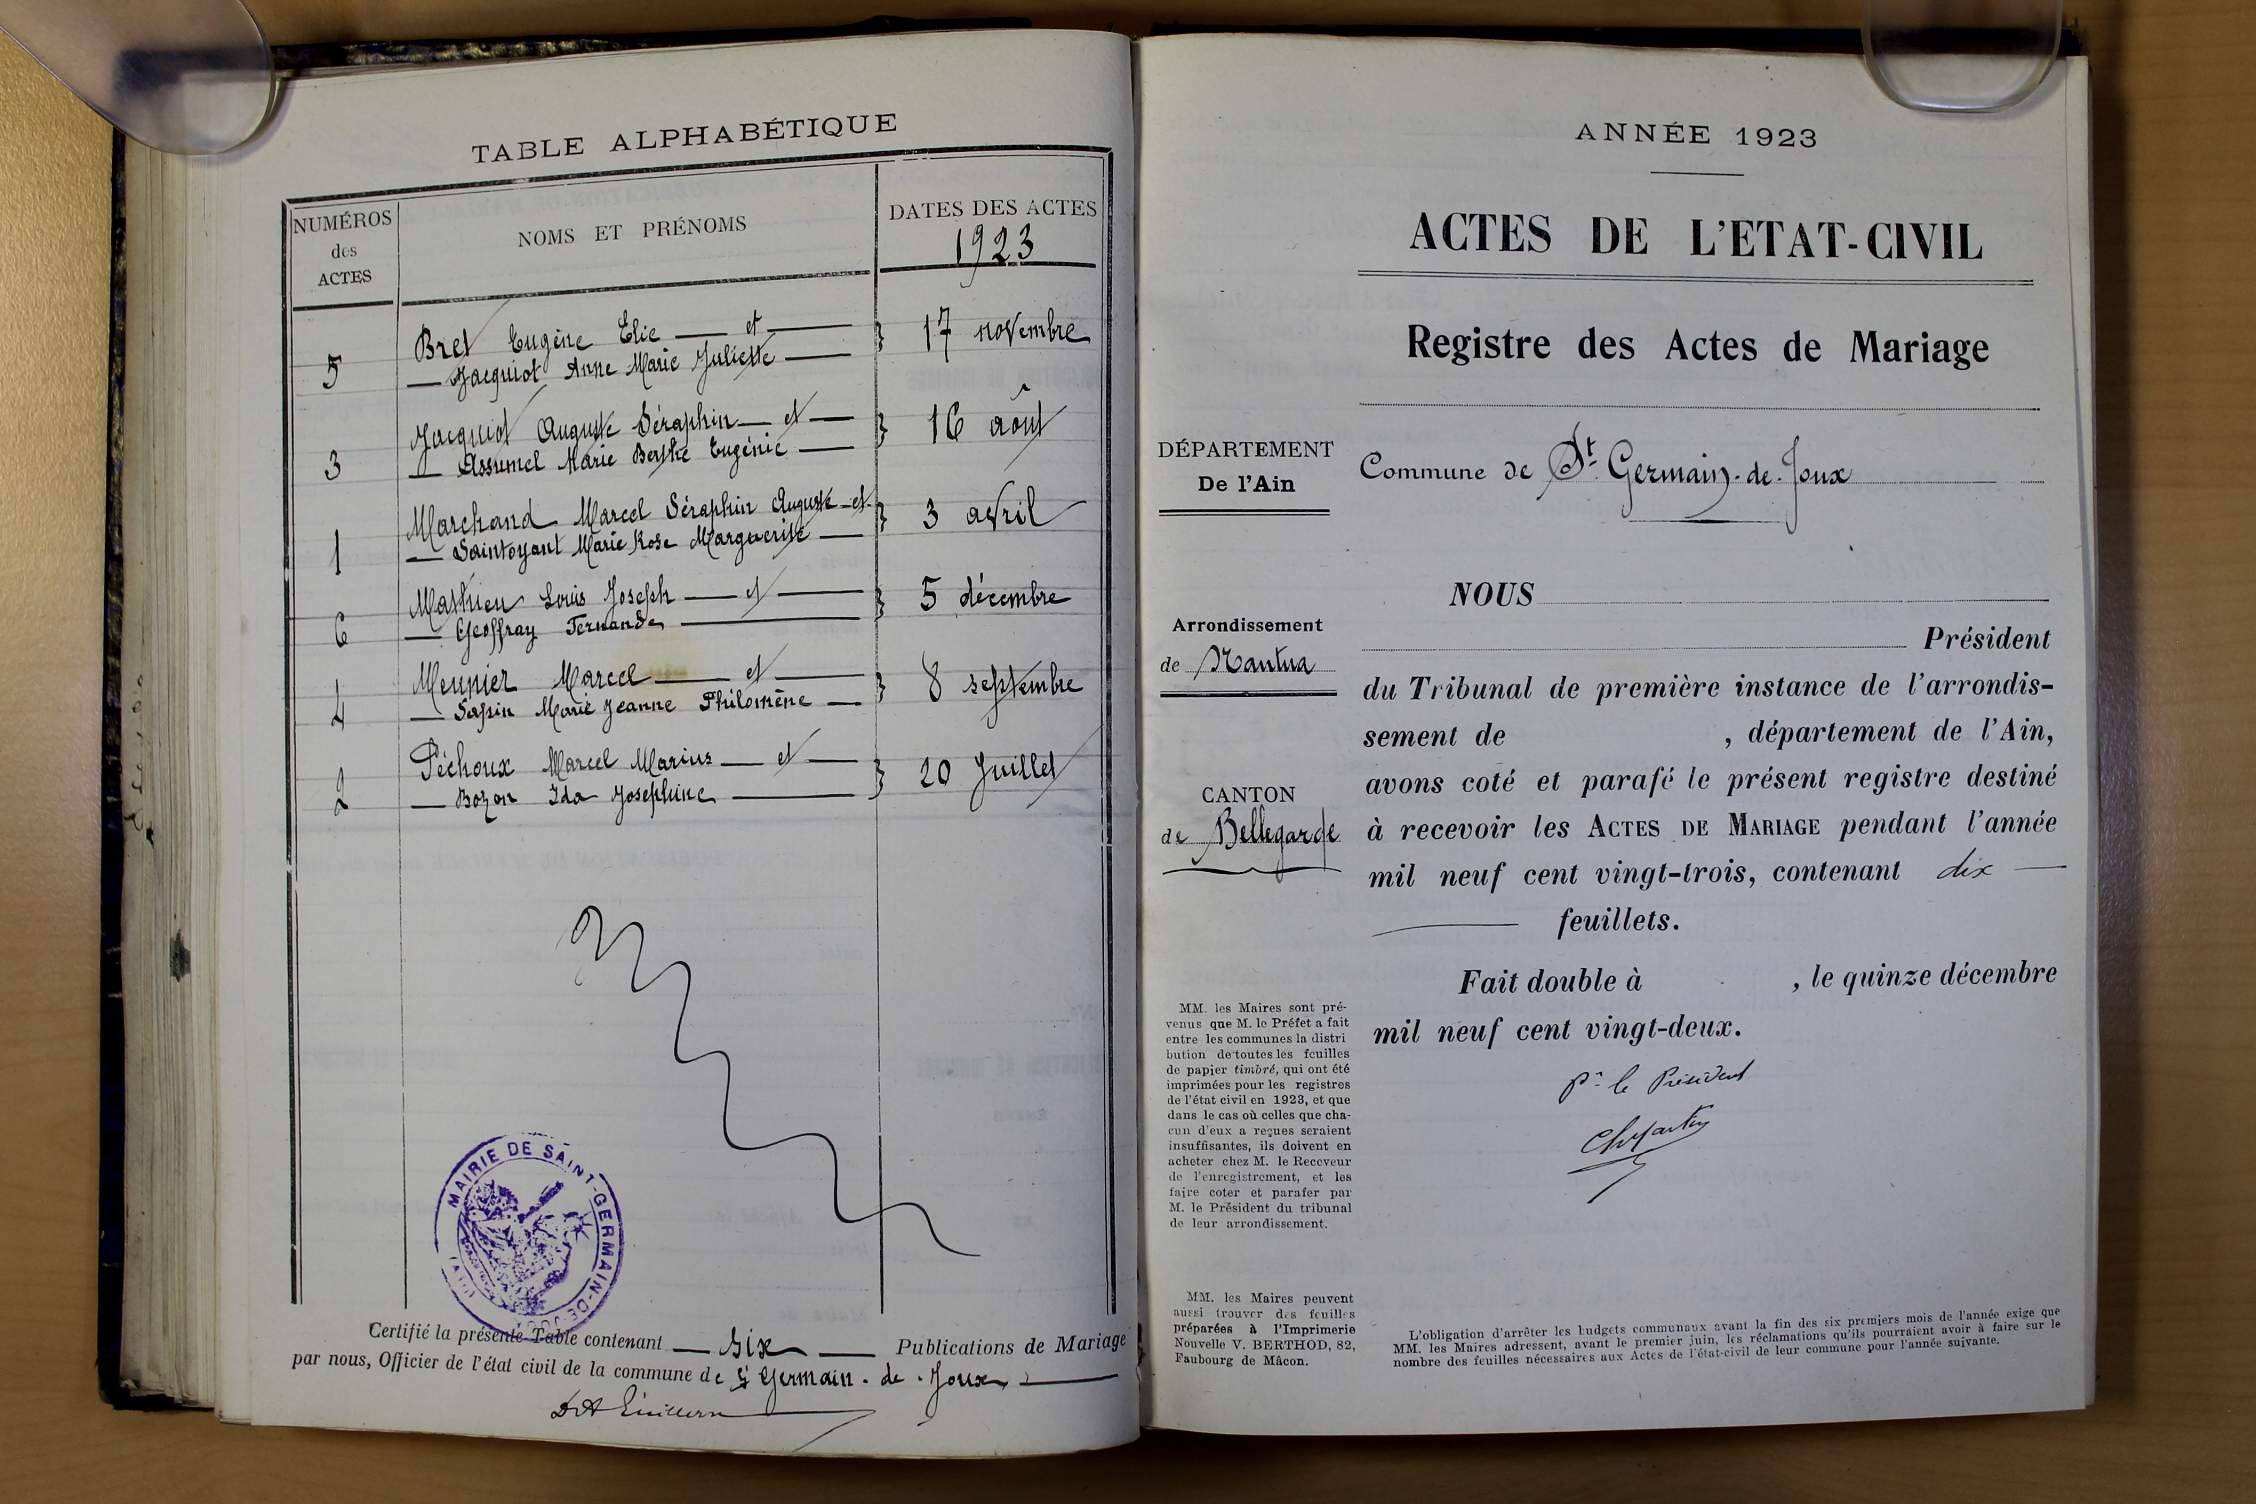 TABLE ALPHABÉTIQUE
NUMÉROS
des
ACTES
NOMS ET PRÉNOMS
DATES DES ACTES
1923
5
Bret Eugène Elie et
Jacquiot Anne Marie Juliette
17 novembre
3
Jacquiot Auguste Séraphin et
Assumel Marie Berthe Eugénie
16 aôut
1
Marchand Marcel Séraphin Auguste et
Saintoyant Marie Rose Marguerite
3 avril
6
Mathieu Louis Joseph et
Geoffray Fernande
5 décembre
4
Meunier Marcel et
Sapin Marie Jeanne Philomène
8 septembre
2
Péchoux Marcel Marius et
Bozon Ida Joséphine
20 Juillet
MAIRIE DE SAINT-GERMAIN-DE-JOUX
(AIN)
Certifié la présente Table contenant six Publications de Mariage
par nous, Officier de l'état civil de la commune de St Germain-de-Joux
ANNÉE 1923
ACTES DE L'ETAT-CIVIL
Registre des Actes de Mariage
DÉPARTEMENT
De l'Ain
Commune de St. Germain-de-Joux
Arrondissement
de Nantua
CANTON
de Bellegarde
NOUS
Président
du Tribunal de première instance de l'arrondis-
sement de , département de l'Ain,
avons coté et parafé le présent registre destiné
à recevoir les ACTES DE MARIAGE pendant l'année
mil neuf cent vingt-trois, contenant dix
feuillets.
Fait double à , le quinze décembre
mil neuf cent vingt-deux.
Pr le Président
MM. les Maires sont pré-
venus que M. le Préfet a fait
entre les communes la distri
bution de toutes les feuilles
de papier timbré, qui ont été
imprimées pour les registres
de l'état civil en 1923, et que
dans le cas où celles que cha-
cun d'eux a reçues seraient
insuffisantes, ils doivent en
acheter chez M. le Receveur
de l'enregistrement, et les
faire coter et parafer par
M. le Président du tribunal
de leur arrondissement.
MM. les Maires peuvent
aussi trouver des feuilles
préparées à l'Imprimerie
Nouvelle V. BERTHOD, 82,
Faubourg de Mâcon.
L'obligation d'arrêter les budgets communaux avant la fin des six premiers mois de l'année exige que
MM. les Maires adressent, avant le premier juin, les réclamations qu'ils pourraient avoir à faire sur le
nombre des feuilles nécessaires aux Actes de l'état-civil de leur commune pour l'année suivante.